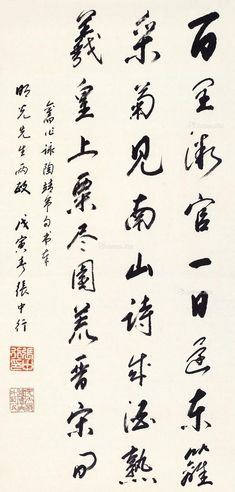 百里微官一日还东篱
采菊见南山诗成酒熟
羲皇上粟尽园荒晋宋间
旧作咏陶靖节句书奉
明光先生两政 戊寅春 张中行